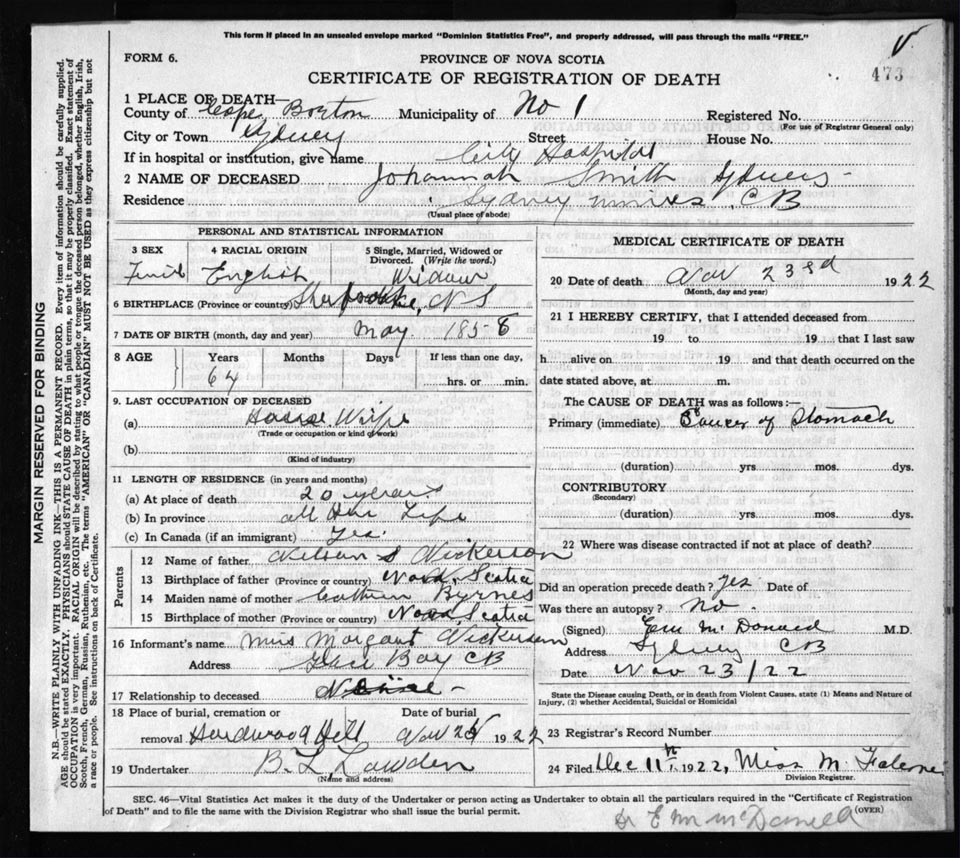 This form if placed in an unsealed envelope marked "Dominion Statistics Free", and properly addressed, will pass through the mails "FREE."
FORM 6.
PROVINCE OF NOVA SCOTIA
473
CERTIFICATE OF REGISTRATION OF DEATH
1 PLACE OF DEATH—
County of Cape Breton Municipality of No 1 Registered No.
(For use of Registrar General only)
City or Town Sydney Street House No.
If in hospital or institution, give name City Hospital
2 NAME OF DECEASED Johannah Smith Sydney
Residence Sydney mines. CB
(Usual place of abode)
PERSONAL AND STATISTICAL INFORMATION
3 SEX 4 RACIAL ORIGIN 5 Single, Married, Widowed or Divorced. (Write the word.)
English Widow
6 BIRTHPLACE (Province or country) Sherbrooke, NS
7 DATE OF BIRTH (month, day and year) May 1858
8 AGE Years Months Days If less than one day,
64 hrs. or min.
9. LAST OCCUPATION OF DECEASED
(a) House Wife
(Trade or occupation or kind of work)
(b)
(Kind of industry)
11 LENGTH OF RESIDENCE (in years and months)
(a) At place of death 20 years
(b) In province all Her Life
(c) In Canada (if an immigrant) Yes.
Parents
12 Name of father S Nickerson
13 Birthplace of father (Province or country) Nova Scotia
14 Maiden name of mother Byrnes
15 Birthplace of mother (Province or country) Nova Scotia
16 Informant's name Margaret Nickerson
Address Glace Bay CB
17 Relationship to deceased
18 Place of burial, cremation or Date of burial
removal Hardwood Hill Nov 1922
19 Undertaker B. L. Lowden
(Name and address)
MEDICAL CERTIFICATE OF DEATH
20 Date of death Nov 23rd 1922
(Month, day and year)
21 I HEREBY CERTIFY, that I attended deceased from
19 to 19 that I last saw
h alive on 19 and that death occurred on the
date stated above, at m.
The CAUSE OF DEATH was as follows:—
Primary (immediate) Cancer of Stomach
(duration) yrs mos. dys.
CONTRIBUTORY
(Secondary)
(duration) yrs. mos. dys.
22 Where was disease contracted if not at place of death?
Did an operation precede death? yes Date of
Was there an autopsy? No.
(Signed) McDonald M.D.
Address Sydney CB
Date Nov 23/22
State the Disease causing Death, or in death from Violent Causes, state (1) Means and Nature of Injury, (2) whether Accidental, Suicidal or Homicidal
23 Registrar's Record Number
24 Filed Dec 11th 1922, Miss M.
Division Registrar.
SEC. 46—Vital Statistics Act makes it the duty of the Undertaker or person acting as Undertaker to obtain all the particulars required in the "Certificate of Registration
of Death" and to file the same with the Division Registrar who shall issue the burial permit.
(OVER)
Dr E M McDonald
MARGIN RESERVED FOR BINDING
N.B.—WRITE PLAINLY WITH UNFADING INK—THIS IS A PERMANENT RECORD. Every item of information should be carefully supplied.
AGE should be stated EXACTLY. PHYSICIANS should STATE CAUSE OF DEATH in plain terms, so that it may be properly classified. Exact statement of
OCCUPATION is very important. RACIAL ORIGIN will be described by stating to what people or tongue the deceased person belonged, whether English, Irish,
Scotch, French, German, Russian, Ruthenian, etc. The terms "AMERICAN" OR "CANADIAN" MUST NOT BE USED as they express citizenship but not
a race or people. See instructions on back of Certificate.